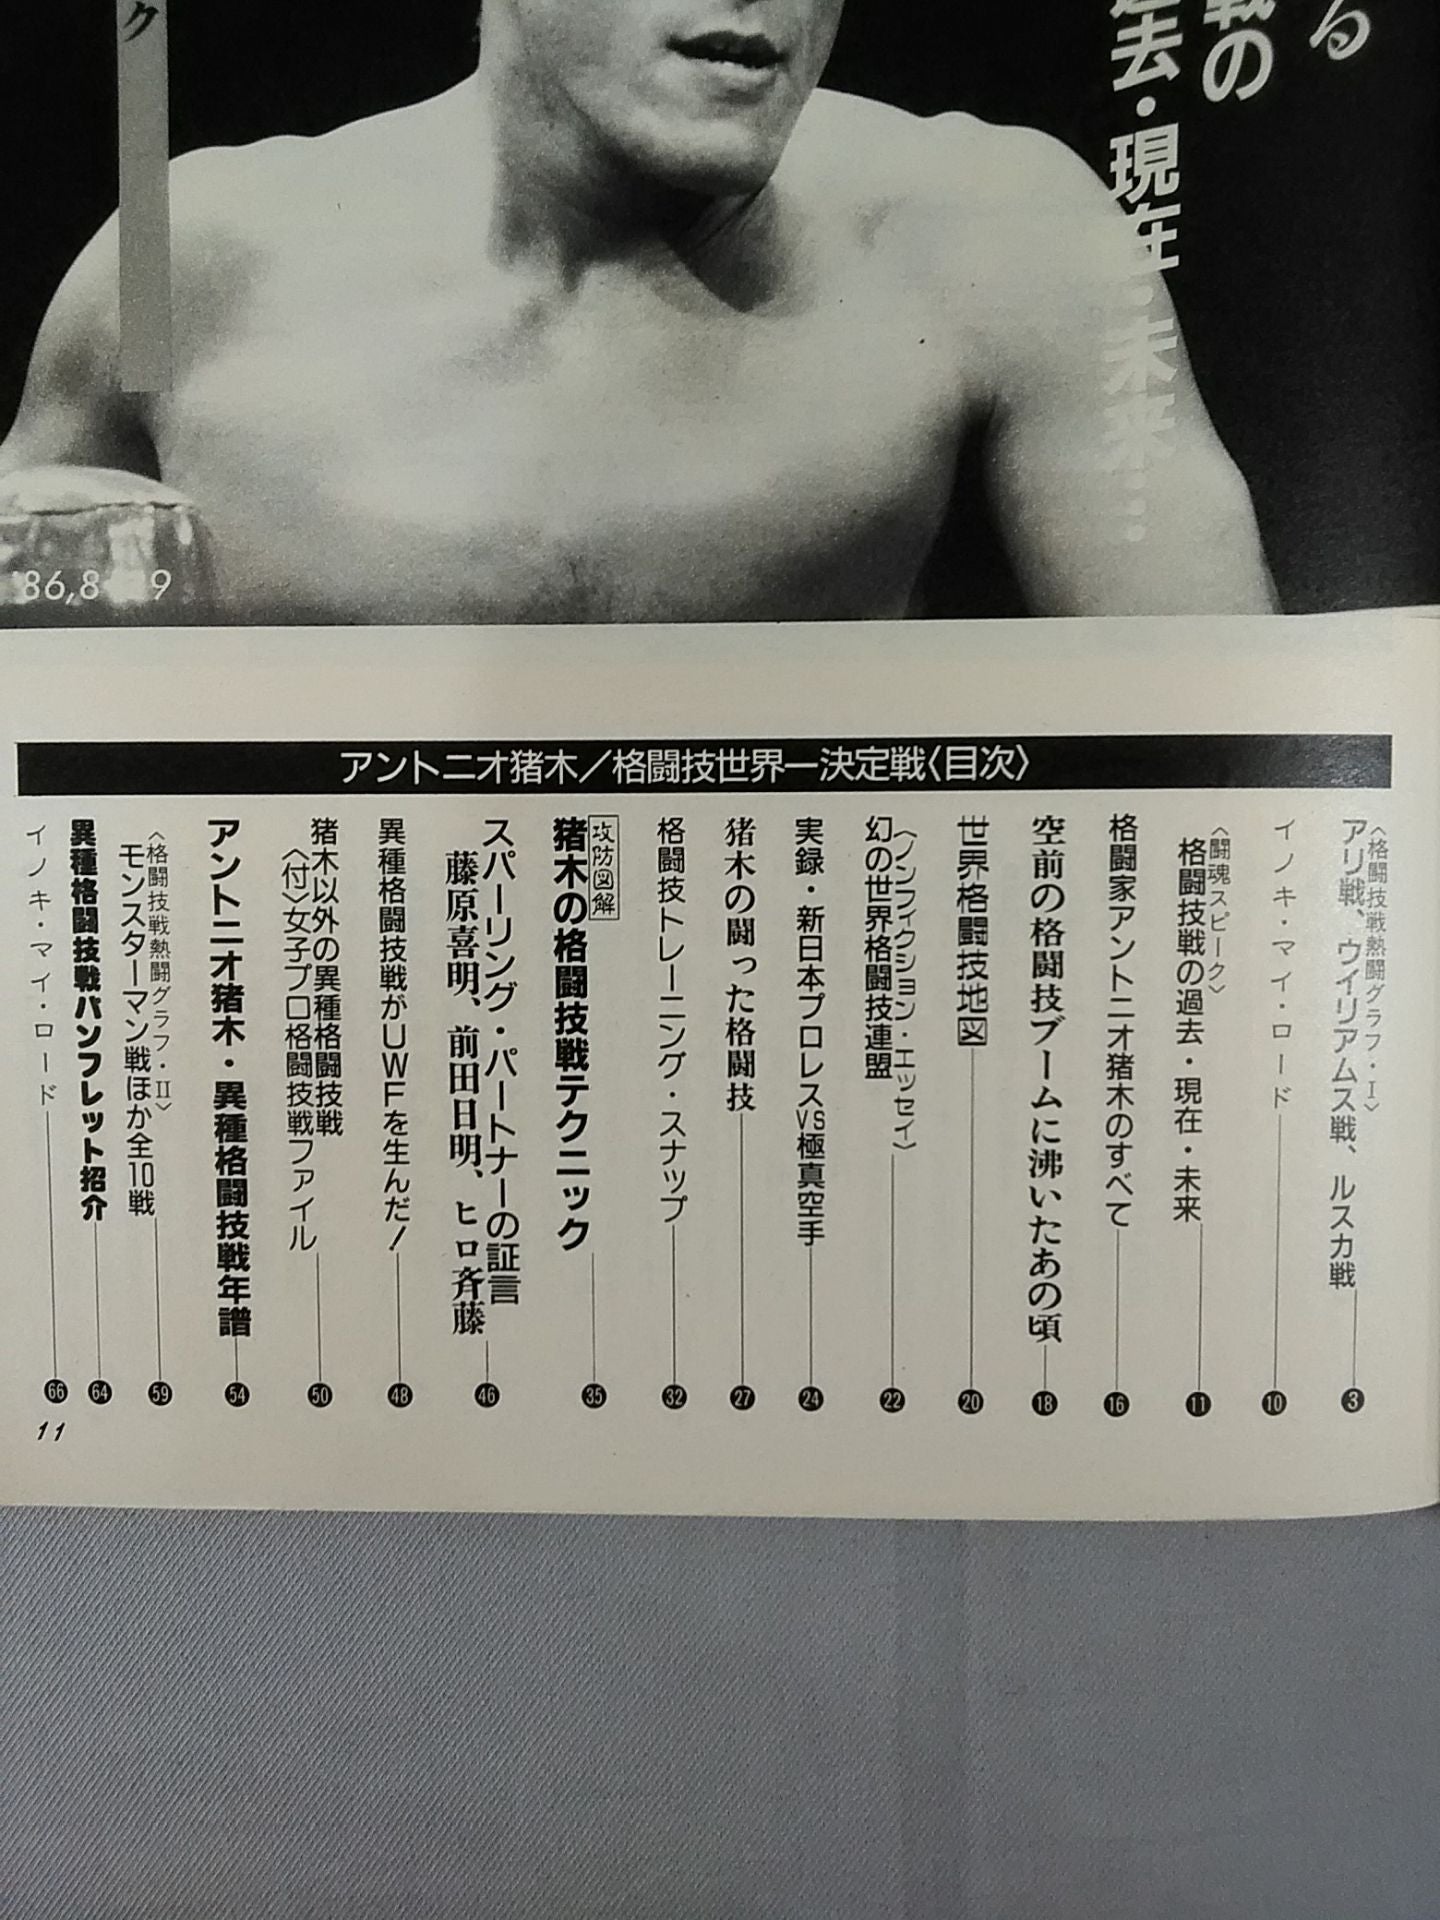 る
戦の
過去・現在・未来…
ク
'86,8 9
アントニオ猪木／格闘技世界一決定戦〈目次〉
〈格闘技戦熱闘グラフ・I〉
アリ戦、ウイリアムス戦、ルスカ戦 3
イノキ・マイ・ロード 10
〈闘魂スピーク〉
格闘技戦の過去・現在・未来 11
格闘家アントニオ猪木のすべて 16
空前の格闘技ブームに沸いたあの頃 18
世界格闘技地図 20
〈ノンフィクション・エッセイ〉
幻の世界格闘技連盟 22
実録・新日本プロレスVS極真空手 24
猪木の闘った格闘技 27
格闘技トレーニング・スナップ 32
攻防図解
猪木の格闘技戦テクニック 35
スパーリング・パートナーの証言
藤原喜明、前田日明、ヒロ斉藤 46
異種格闘技戦がUWFを生んだ! 48
猪木以外の異種格闘技戦
〈付〉女子プロ格闘技戦ファイル 50
アントニオ猪木・異種格闘技戦年譜 54
〈格闘技戦熱闘グラフ・II〉
モンスターマン戦ほか全10戦 59
異種格闘技戦パンフレット紹介 64
イノキ・マイ・ロード 66
11